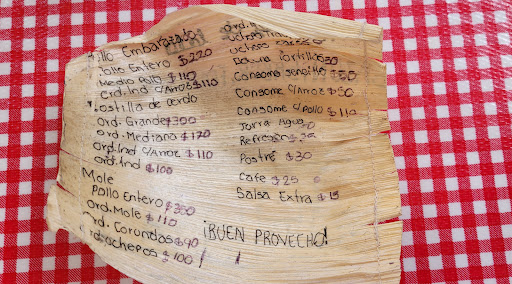 Pollo Embarazado
Pollo Entero $220
Medio Pollo $110
Ord.Ind c/Arros $110
Costilla de cerdo
Ord. Grande $390
Ord. Mediana $170
Ord.Ind c/Arroz $110
Ord.Ind $100
Mole
Pollo Entero $350
Ord. Mole $110
Ord. Corundas $90
Uchepos $100
Uchepo
Docena Tortillas
Consome sencillo $50
Consome c/Arroz $50
Consome c/Pollo $110
Jarra Agua
Refresco
Postre $30
Cafe $25
Salsa Extra $15
¡BUEN PROVECHO!